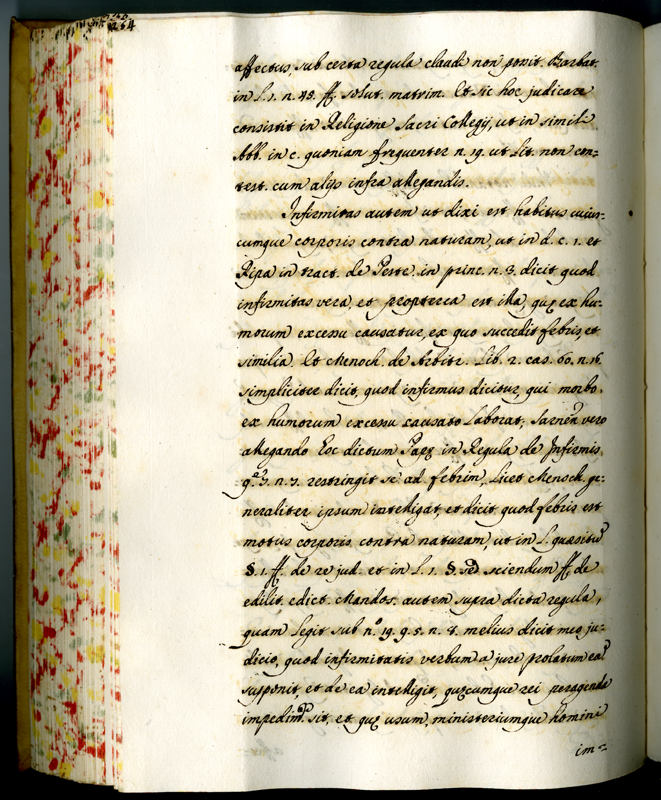 264
affectus, sub certa regula claudi non possit. Barbat.
in l. 1. n. 45. ff. solut. matrim. Et sic hoc judicare
consistit in Religione Sacri Collegij, ut in simili
Abb. in c. quoniam frequenter n. 19. ut lit. non con=
test. cum alijs infra allegandis.
Infirmitas autem ut dixi est habitus cuius=
cumque corporis contra naturam, ut in d. c. 1. et
Ripa in tract. de Peste in princ. n. 3. dicit quod
infirmitas vera, et propterea est illa quę ex hu=
morum excessu causatur, ex quo succedit febris, et
similia. Et Menoch. de Arbitr. Lib. 2. cas. 60. n. 16.
simpliciter dicit, quod infirmus dicitur, qui morbo
ex humorum excessu causato Laborat; Sarnen vero
allegando hoc dictum Papę in Regula de Infirmis
q. 3. n. 7. restringit se ad febrim, Licet Menoch. ge=
neraliter ipsum intelligat, et dicit quod febris est
motus corporis contra naturam, ut in L. quæsitu
§. 1. ff. de re jud. et in L. 1. §. sed sciendum ff. de
edilit. edict. Mandos. autem supra dicta regula,
quam legit sub nº 19. q. 5. n. 4. melius dicit meo ju=
dicio, quod infirmitatis verbum a jure prolatum ea
supponit, et de ea intelligit, quęcumque rei peragenda
impedim. sit, et quę usum, ministeriumque homini
im=